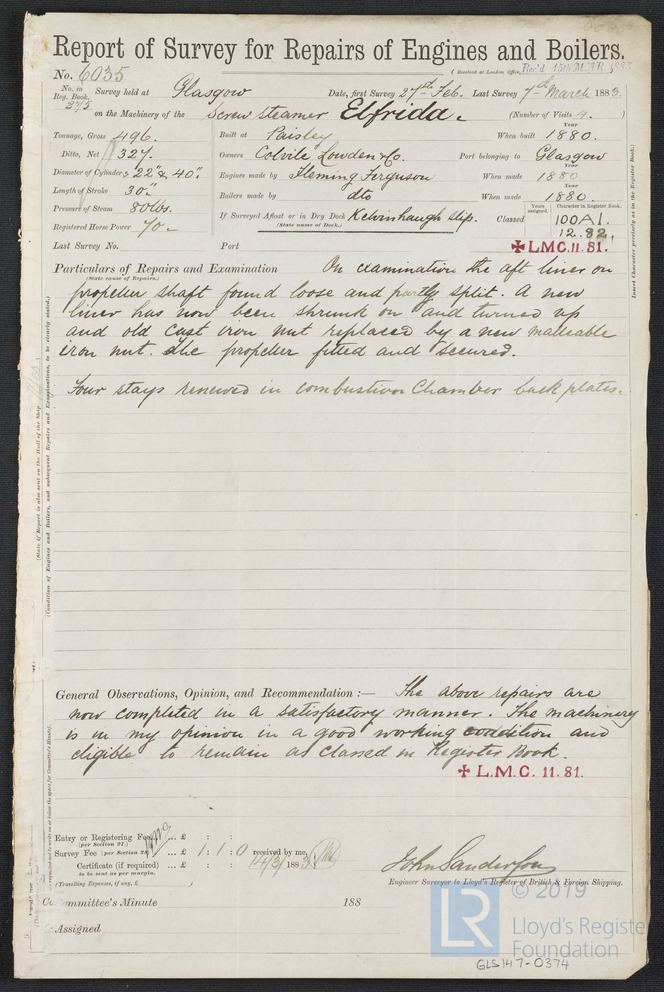 Report of Survey for Repairs of Engines and Boilers.
No. 6035
(Received at London Office, Rec'd 15th MAR 1883
No. in Reg. Book. 275 Survey held at Glasgow Date, first Survey 27th Feb. Last Survey 7th March 1883.
on the Machinery of the Screw steamer Elfrida. (Number of Visits 4.)
Tonnage, Gross 496. Built at Paisley When built Year 1880.
Ditto, Net 327. Owners Colvile Lowden & Co. Port belonging to Glasgow
Diameter of Cylinders 22" & 40". Engines made by Fleming Ferguson When made Year 1880
Length of Stroke 30". Boilers made by dto When made Year 1880
Pressure of Steam 80 lbs. If Surveyed Afloat or in Dry Dock Kelvinhaugh slip. Classed Years assigned. Character in Register Book. 100A1.
(State name of Dock.)
Registered Horse Power 70. 12.82.
Last Survey No. Port ✠LMC.11.81.
Particulars of Repairs and Examination On examination the aft liner on
(State cause of Repairs.)
propeller shaft found loose and partly split. A new
liner has now been shrunk on and turned up
and old cast iron nut replaced by a new malleable
iron nut. The propeller fitted and secured.
Four stays renewed in combustion Chamber back plates.
General Observations, Opinion, and Recommendation:— The above repairs are
now completed in a satisfactory manner. The machinery
is in my opinion in a good working condition and
eligible to remain as classed in Register Book.
✠ L.M.C. 11.81.
Entry or Registering Fee ... £ : :
(per Section 27.)
Survey Fee (per Section 28) ... £ 1 : 1 : 0 received by me,
Certificate (if required) ... £ : : 14/3/1883
to be sent as per margin.
(Travelling Expenses, if any, £ )
John Sanderson
Engineer Surveyor to Lloyd's Register of British & Foreign Shipping.
Committee's Minute 188
Assigned
(State if Report is also sent on the Hull of the Ship
(Condition of Engines and Boilers, and subsequent Repairs and Examinations, to be clearly stated.)
Insert Character precisely as in the Register Book.
LR
© 2019
Lloyd's Register
Foundation
GLS147-0374